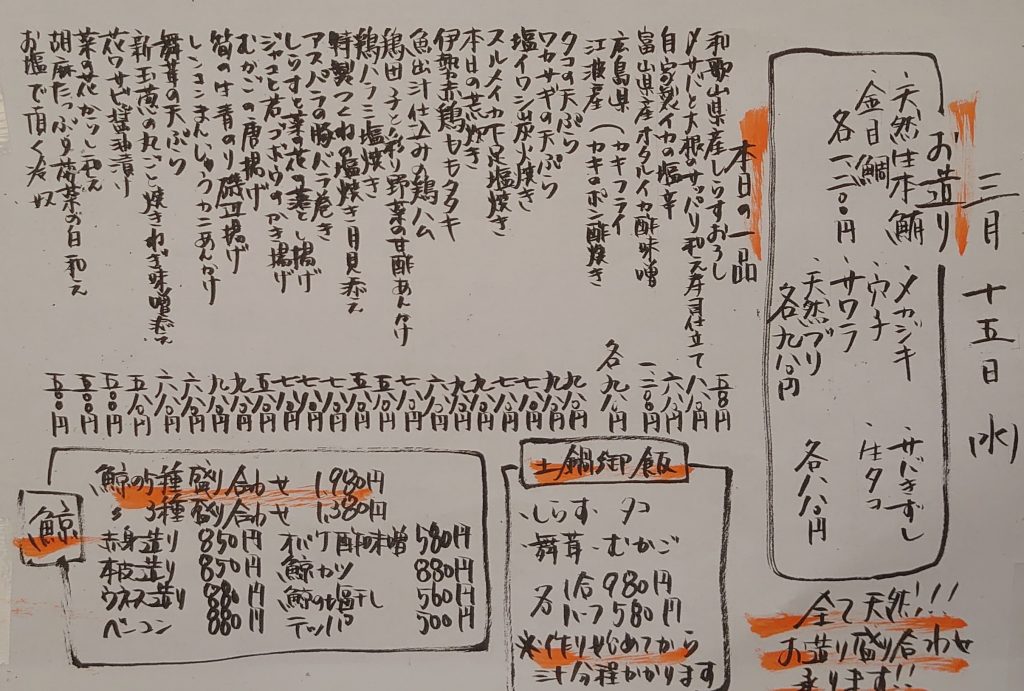 三月十五日 水
お造り
・天然生本鮪
・金目鯛
各一二〇〇円
・メカジキ
・穴子
・サワラ
・天然ブリ
各九八〇円
・サバきずし
・生タコ
各八八〇円
全て天然!!!
お造り盛り合わせ
承ります!!
本日の一品
和歌山県産しらすおろし 五八〇円
〆サバと大根のサッパリ和え寿司仕立て 八八〇円
自家製イカの塩辛 六八〇円
富山県産ホタルイカ酢味噌 一二〇〇円
広島県 (カキフライ
江波産 (カキのポン酢焼き 各九八〇円
タコの天ぷら 九八〇円
ワカサギの天ぷら 九八〇円
塩イワシ炭火焼き
スルメイカ下足塩焼き
本日の荒炊き
伊勢赤鶏ももタタキ
魚出汁仕込みの鶏ハム
鶏団子と彩り野菜の甘酢あんかけ
鶏ハラミ塩焼き
特製つくねの塩焼き月見添え
アスパラの豚バラ巻き
しらすと菜の花の落とし揚げ
ジャコと若ゴボウのかき揚げ
むかごの唐揚げ
筍のはさみ青のり磯辺揚げ
レンコンまんじゅうカニあんかけ
舞茸の天ぷら
新玉葱の丸ごと焼きねぎ味噌添え
花ワサビ醤油漬け
菜の花からし和え
胡麻たっぷり菊菜の白和え
お塩で頂く冷奴
土鍋御飯
・しらす ・タコ
・舞茸 ・むかご
各 1合 980円
ハーフ 580円
※作り始めてから
三十分程かかります
鯨
鯨の5種盛り合わせ 1,980円
〃 3種盛り合わせ 1,380円
赤身造り 850円 オバケ酢味噌 580円
本皮造り 850円 鯨カツ 880円
ウネス造り 880円 鯨の塩干し 560円
ベーコン 880円 テッパ 500円